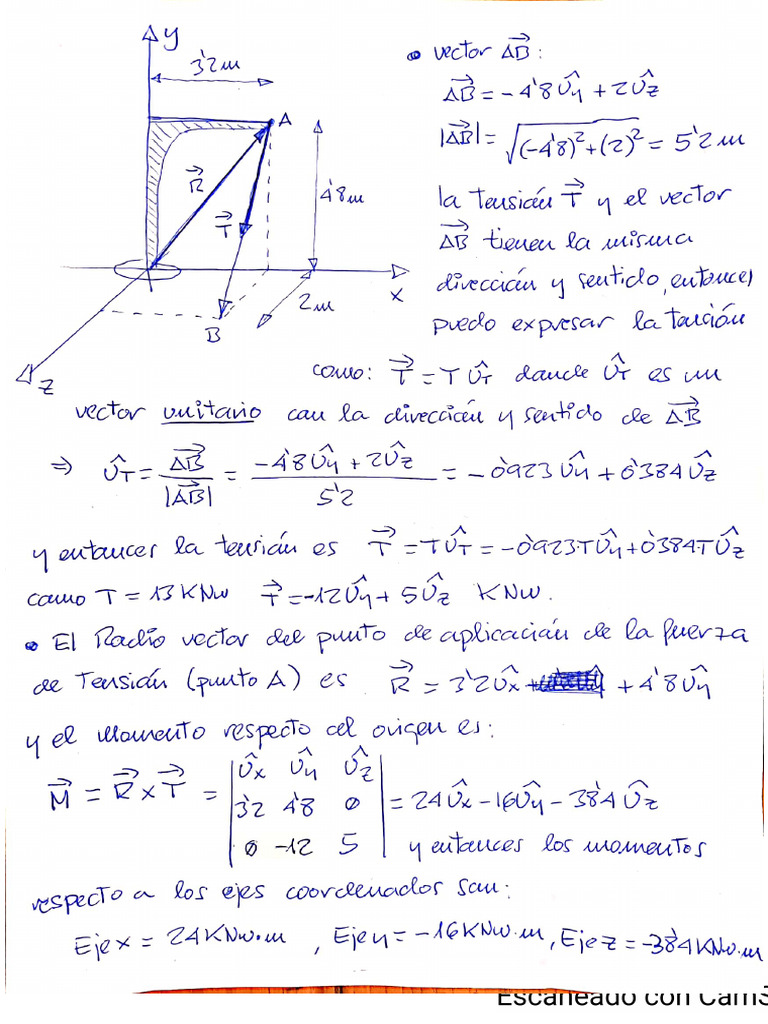 y
3'2m
A
R
T
4'8m
x
2m
B
z
• vector AB:
AB = -4'8Ûy + 2Ûz
|AB| = √(-4'8)²+(2)² = 5'2m
la tensián T y el vector
AB tienen la misma
direccián y sentido, entonces
puedo expresar la tensión
como: T = T ÛT dande ÛT es un
vector unitario can la direccián y sentido de AB
⇒ ÛT = AB / |AB| = -4'8Ûy + 2Ûz / 5'2 = -0'923 Ûy + 0'384 Ûz
y entances la tensián es T = TÛT = -0'923TÛy+0'384TÛz
como T = 13 KNw T = -12Ûy + 5Ûz KNw.
• El Radio vector del punto de aplicacián de la fuerza
de Tensián (punto A) es R = 3'2Ûx + 4'8Ûy
y el momento respecto del origen es:
M = R x T = | Ûx Ûy Ûz | 
3'2 4'8 0 = 24Ûx - 16Ûy - 38'4 Ûz
0 -12 5 y entances los momentos
respecto a los ejes coordenados san:
Eje x = 24 KNw·m , Eje y = -16 KNw·m, Eje z = -38'4 KNw·m
Escaneado con CamS